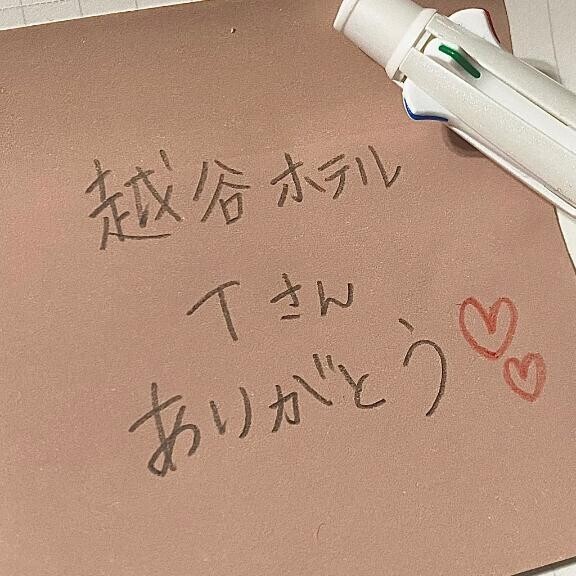 越谷ホテル
Tさん
ありがとう♡♡